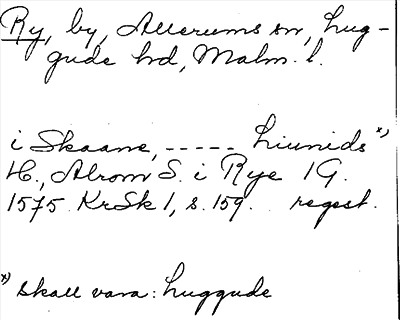 Ry, by, Allerums sn, Lug-
gude hd, Malm. l.
i Skaane, ----- Liunids x)
H., Alrom S. i Rye 1 G.
1575 KrSk 1, s. 159. regest.
x) skall vara: Luggude